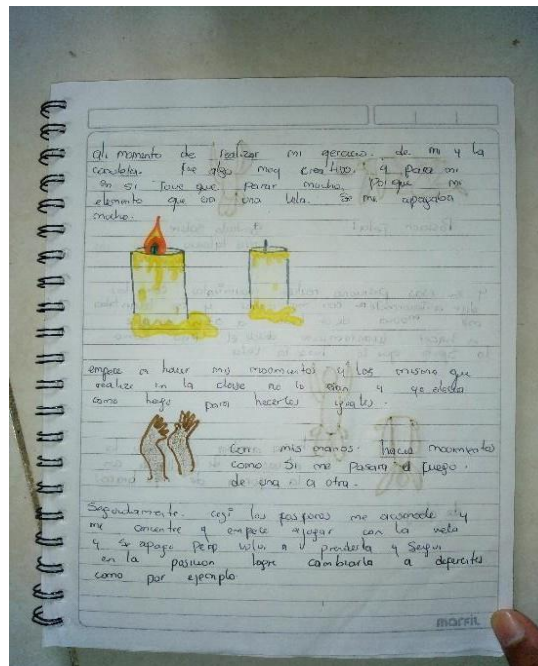 al momento de realizar mi gercicio. de mi y la
candela. fue algo muy creativo. y para mi
en si tuve que parar mucho, porque mi
elemento que era una vela. Se me apagaba
mucho.
empece a hacer mis movimientos y los mismo que
realize en la clase no lo eran y yo decia
como hago para hacerlos iguales.
Con mis manos. hacia movimientos
como si me pasara el fuego.
de una a a otra.
Seguidamente. cogi los fosforos me acomode y
me concentre y empece ajugar con la vela
y se apago pero volvi a prenderla y Segui
en la posicion logre cambiarla a deferentes
como por ejemplo.
marfil